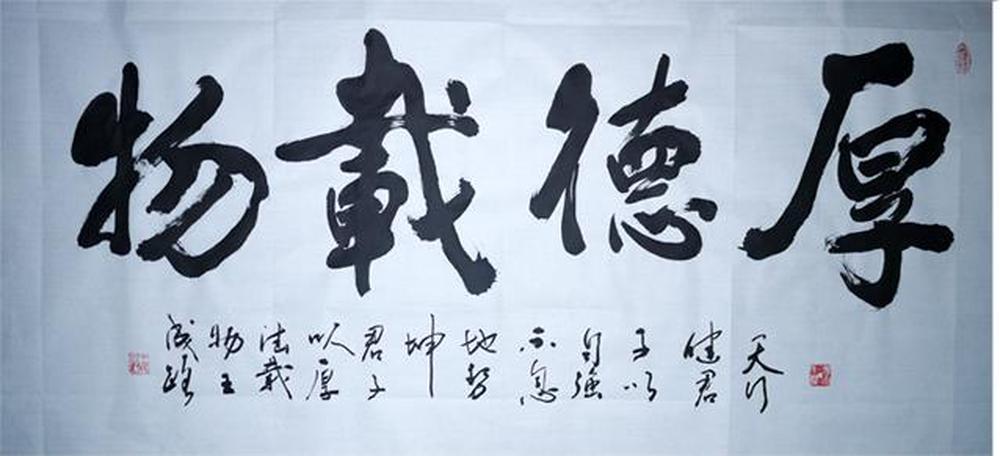 厚德載物
天行
健君
子以
自強
不息
地勢
坤
君子
以厚
德載
物王
成